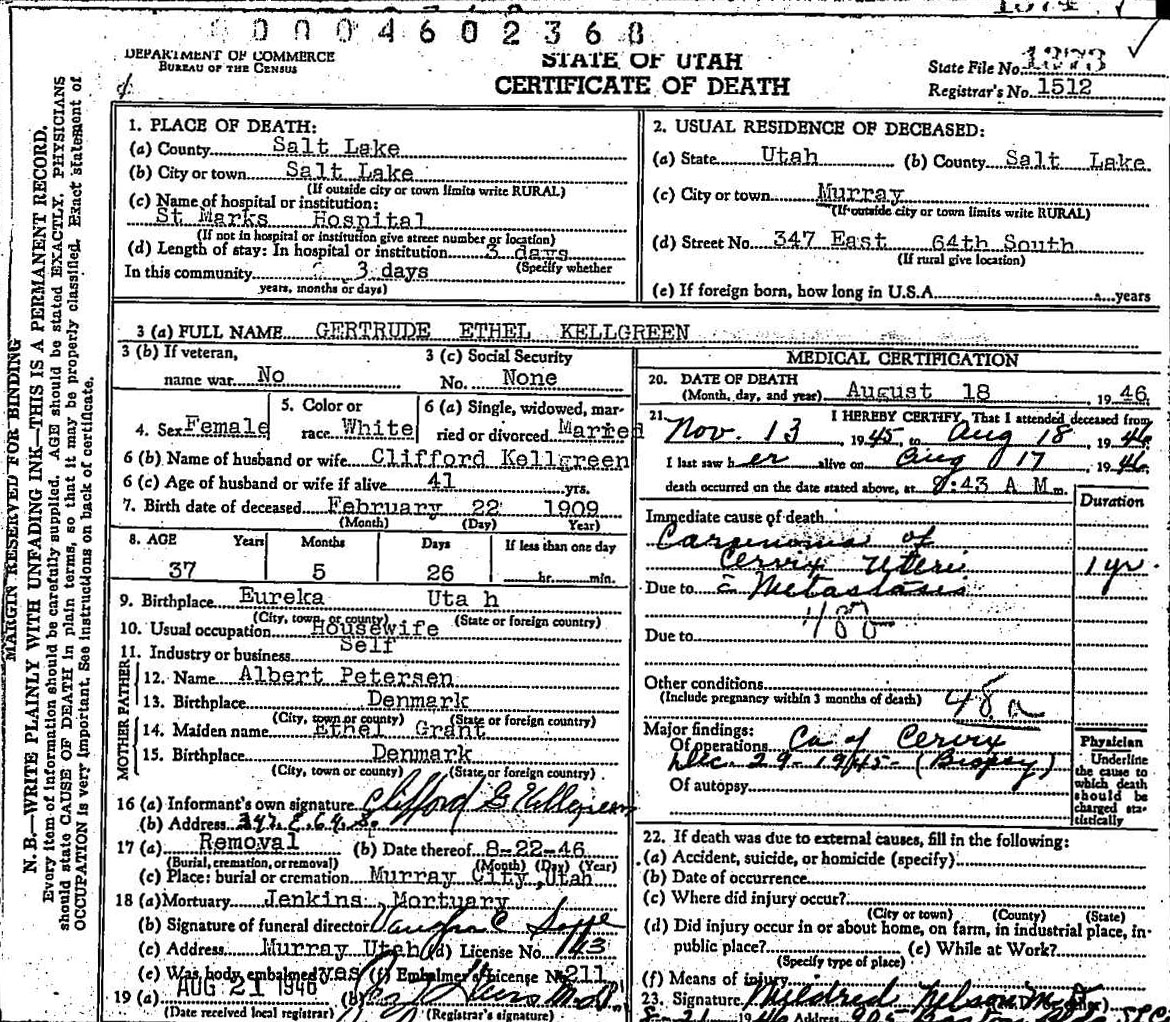 0 0 0 4 6 0 2 3 6 8
DEPARTMENT OF COMMERCE
BUREAU OF THE CENSUS
STATE OF UTAH
CERTIFICATE OF DEATH
State File No. 1373
Registrar's No. 1512
MARGIN RESERVED FOR BINDING
N. B.—WRITE PLAINLY WITH UNFADING INK—THIS IS A PERMANENT RECORD.
Every item of information should be carefully supplied. AGE should be stated EXACTLY. PHYSICIANS
should state CAUSE OF DEATH in plain terms, so that it may be properly classified. Exact statement of
OCCUPATION is very important. See instructions on back of certificate.
1. PLACE OF DEATH:
(a) County Salt Lake
(b) City or town Salt Lake
(If outside city or town limits write RURAL)
(c) Name of hospital or institution:
St Marks Hospital
(If not in hospital or institution give street number or location)
(d) Length of stay: In hospital or institution 3 days
(Specify whether
In this community 3 days
years, months or days)
2. USUAL RESIDENCE OF DECEASED:
(a) State Utah (b) County Salt Lake
(c) City or town Murray
(If outside city or town limits write RURAL)
(d) Street No. 347 East 64th South
(If rural give location)
(e) If foreign born, how long in U.S.A. years
3 (a) FULL NAME GERTRUDE ETHEL KELLGREEN
3 (b) If veteran,
name war No
3 (c) Social Security
No. None
4. Sex Female
5. Color or
race White
6 (a) Single, widowed, mar-
ried or divorced Married
6 (b) Name of husband or wife Clifford Kellgreen
6 (c) Age of husband or wife if alive 41 yrs.
7. Birth date of deceased February 22 1909
(Month) (Day) Year)
8. AGE Years Months Days If less than one day
37 5 26 hr. min.
9. Birthplace Eureka Uta h
(City, town, or county) (State or foreign country)
10. Usual occupation Housewife
11. Industry or business Self
FATHER
12. Name Albert Petersen
13. Birthplace Denmark
(City, town or county) (State or foreign country)
MOTHER
14. Maiden name Ethel Grant
15. Birthplace Denmark
(City, town or county) (State or foreign country)
16 (a) Informant's own signature Clifford G Kellgreen
(b) Address 347 E. 64 S.
17 (a) Removal (b) Date thereof 8-22-46
(Burial, cremation, or removal) (Month) (Day) (Year)
(c) Place: burial or cremation Murray City, Utah
18 (a) Mortuary Jenkins Mortuary
(b) Signature of funeral director Vaughn C
(c) Address Murray Utah (d) License No. 143
(e) Was body embalmed yes (f) Embalmer's license No 211
19 (a) AUG 21 1946 (b) M.D.
(Date received local registrar) (Registrar's signature)
MEDICAL CERTIFICATION
20. DATE OF DEATH
(Month, day, and year) August 18, 1946
21. I HEREBY CERTIFY, That I attended deceased from
Nov. 13, 1945, to Aug 18, 1946
I last saw h er alive on Aug 17, 1946
death occurred on the date stated above, at 9:43 A M m.
Duration
Immediate cause of death
Carcinoma of
Cervix Uteri 1 yr.
Due to c̄ Metastasis
Due to
Other conditions
(Include pregnancy within 3 months of death)
48a
Major findings:
Of operations Ca of Cervix
Dec - 29 - 1945 - (Biopsy)
Of autopsy
Physician
Underline
the cause to
which death
should be
charged sta-
tistically
22. If death was due to external causes, fill in the following:
(a) Accident, suicide, or homicide (specify)
(b) Date of occurrence
(c) Where did injury occur?
(City or town) (County) (State)
(d) Did injury occur in or about home, on farm, in industrial place, in-
public place? (e) While at Work?
(Specify type of place)
(f) Means of injury
23. Signature Mildred Nelson M.D.
8-21 1946 Address 905